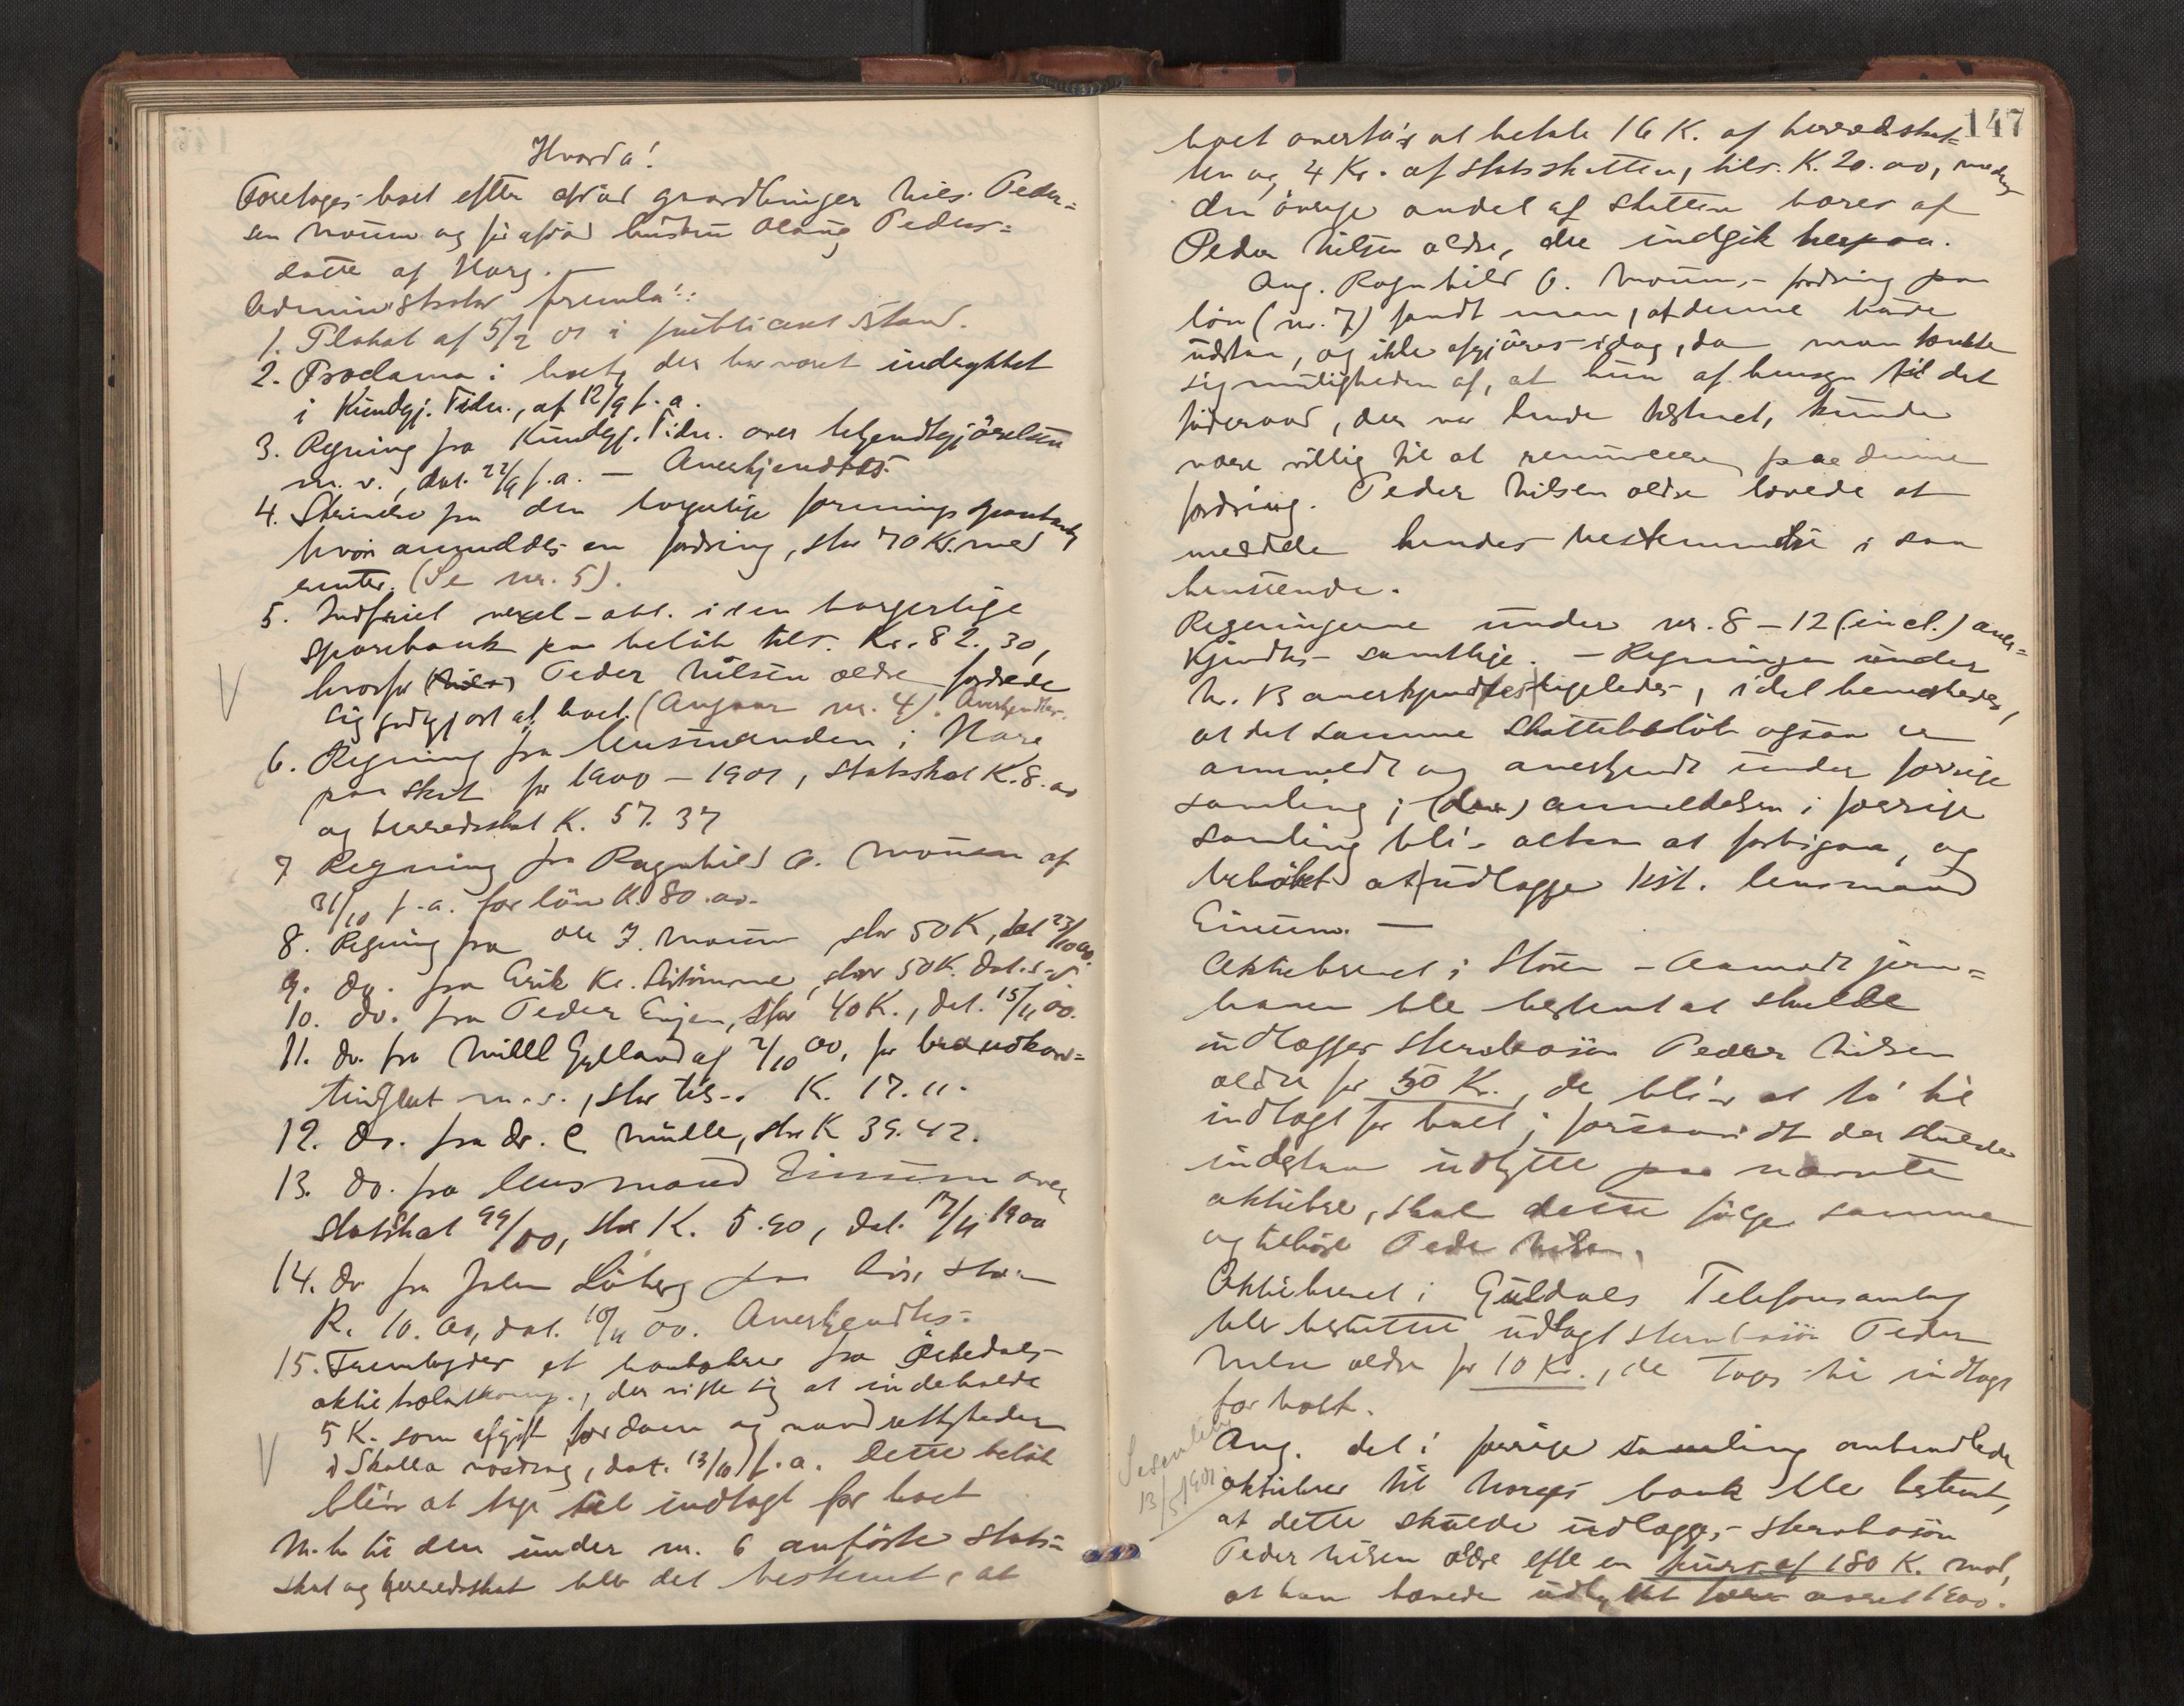 Hvorda!
Foretoges boet efter afdød gaardbruger Nils Peder=
sen Mouen og før afdød hustru Olaug Peders=
datter af Horg. —
Administrator fremla':
1. Plakat af 5/2 01 i publiceret stand.
2. Proclama i boet, der har været indrykket
i Kundgj. Tidn., af 12/9 f. a.
3. Regning fra Kundgj. Tidn. over bekjendtgjørelsen
m. v., dat. 22/9 f. a. — Anerkjendtes.
4. Skrivelse fra den borgerlige forenings sparebank,
hvori anmeldes en fordring, stor 70 Kr. med
renter. (Se nr. 5).
5. Indfriet vexel - obl. i den borgerlige
sparebank paa beløb tils. Kr. 82.30,
hvorfor Peder Nilsen ældre fordrede
sig godtgjort af boet. (Angaar nr. 4). Anerkjendtes.
6. Regning fra lensmanden i Horg
paa skat for 1900 - 1901, statsskat K. 8.00
og herredsskat K. 57.37
7 Regning fra Ragnhild O. Mouen af
31/10 f. a. for løn K. 80.00.
8. Regning fra Ole J. Mouen stor 50 K, dat 23/10 00.
9. do. fra Erik Kr. stor 50 K. dat. s. d.
10. do. fra Peder Engen, stor 40 K., dat. 15/11 00.
11. do. fra Mill Gylland af 2/10 00, for brandkon=
tingent m. v., stor tils. K. 17.11.
12. do. fra dr. C Müller, stor K 39.42.
13. do. fra lensmand Einum over
statsskat 99/00, stor K. 5.90, dat. 17/11 1900
14. do fra John Løberg paa stor
K. 10.00, dat. 10/11 00. Anerkjendtes.
15. Fremlagdes et fra
aktie, der viste sig at indeholde
5 K. som afgift for dam og vandrettigheder
i Skolla vasdrag, dat. 13/10 f. a. Dette beløb
bliver at tage til indtægt for boet
M. h. til den under nr. 6 anførte stats=
skat og herredsskat blev det bestemt, at
147
boet overtar at betale 16 K. af herredsskat=
ten og 4 Kr. af statsskatten, tils. K. 20.00, medens
den øvrige andel af skatten bæres af
Peder Nilsen ældre, der indgik herpaa.
Ang. Ragnhild O. Mouens fordring paa
løn (nr. 7) fandt man, at denne burde
udstaa, og ikke afgjøres idag, da man tænkte
sig muligheden af, at hun af hensyn til det
føderaad, der var hende tilstaaet, kunde
være villig til at renuncere paa denne
fordring. Peder Nilsen ældre lovede at
meddele hendes bestemmelse i saa
henseende.
Regningerne under nr. 8 - 12 (incl.) aner=
kjendtes samtlige. — Regningen under
nr. 13 anerkjendtes ligeledes, idet bemærkedes,
at det samme skattebeløb ogsaa er
anmeldt og anerkjendt under forrige
samling; anmeldelsen i forrige
samling bli'r altsaa at forbigaa, og
beløbet at udlægge kst. lensmand
Einum. —
Aktiebrevet i Støren - Aamodt jern=
banen ble bestemt at skulde
udlægges stervbosøn Peder Nilsen
ældre for 50 Kr., der bli'r at ta' til
indtægt for boet; forsaavidt der skulde
indestaa udbytte paa nævnte
aktiebrev, skal dette følge samme
og tilhøre Peder Nilsen.
Aktiebrevet i Guldals Telefonsamlag
blev besluttet udlagt stervbosøn Peder
Nilsen ældre for 10 Kr., der tages til indtægt
for boet.
Ang. det i forrige samling omhandlede
aktiebrev til Norges bank ble bestemt,
at dette skulde udlægges stervbosøn
Peder Nilsen ældre efter en kurs af 180 K. mod,
at han hævede udbyttet for aaret 1900.
13/5 1901